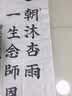 朝沐杏雨
一生念師恩